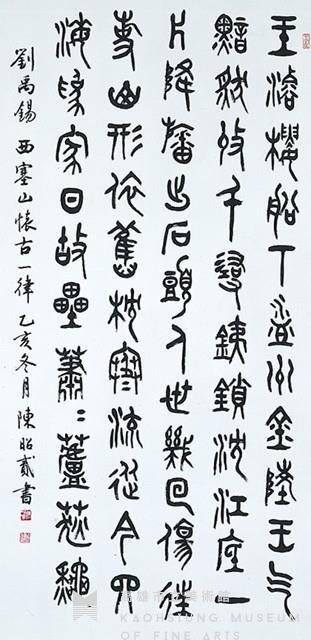 王濬樓船下益州金陵王气
黯然收千尋鐵鎖沈江底一
片降幡出石頭人世幾回傷往
事山形依舊枕寒流從今四
海為家日故壘蕭〻蘆荻秋
劉禹錫 西塞山懷古一律 乙亥冬月陳昭貳書
高雄市立美術館
KAOHSIUNG MUSEUM
OF FINE ARTS